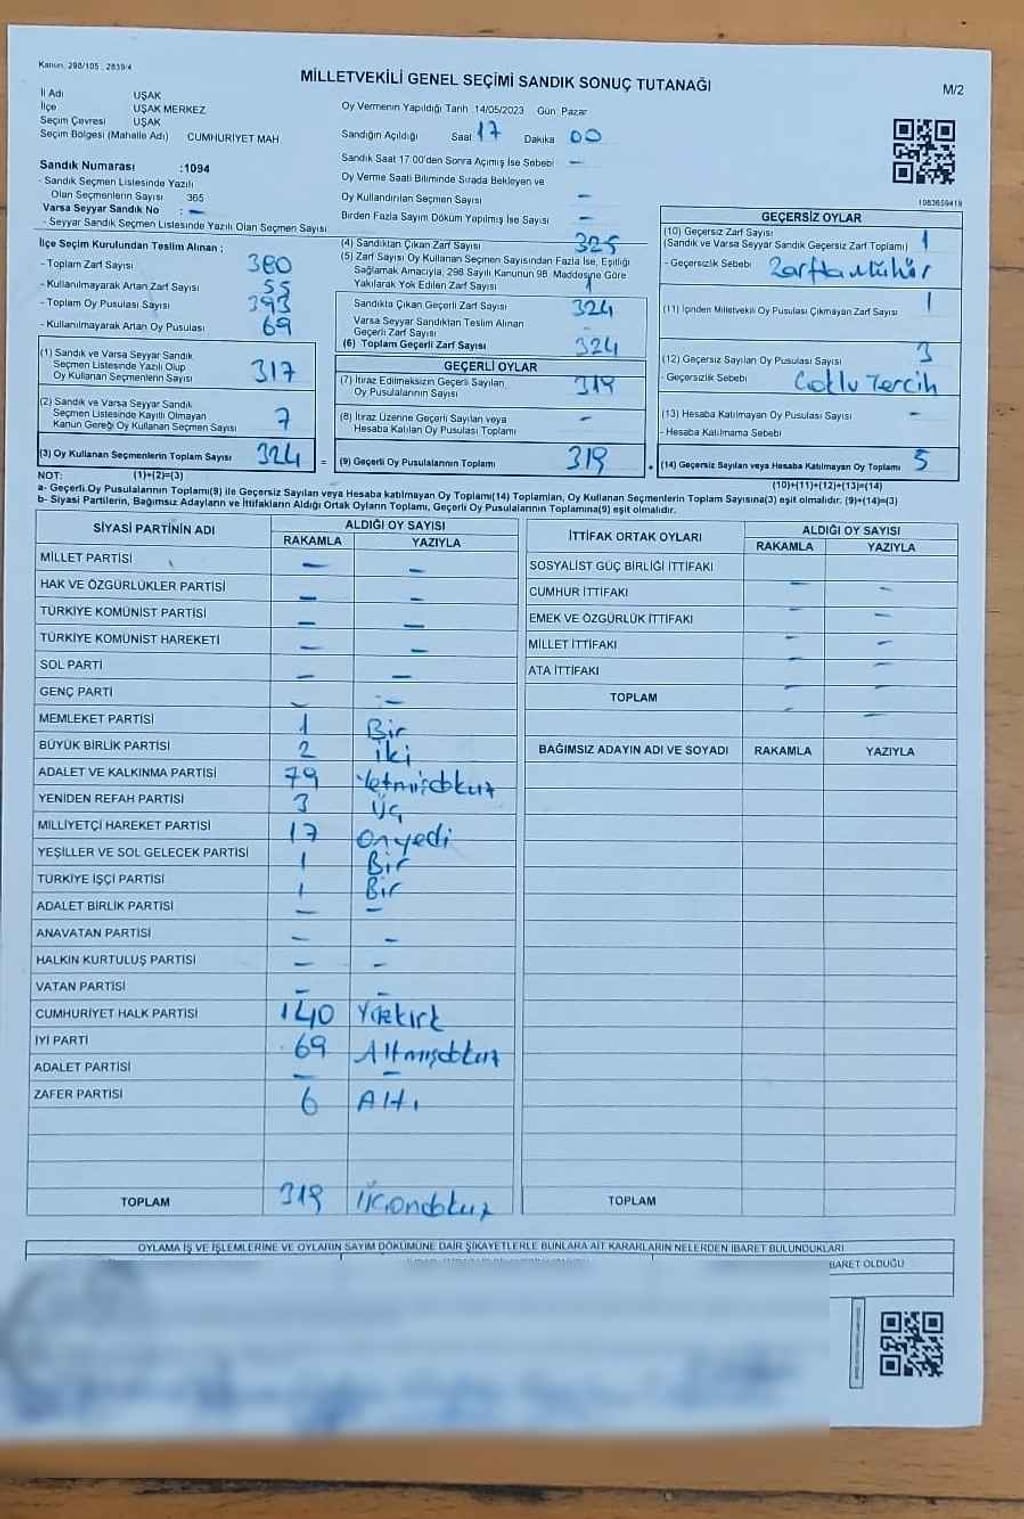 Kanun: 298/105 , 2839/4
MİLLETVEKİLİ GENEL SEÇİMİ SANDIK SONUÇ TUTANAĞI
M/2
İl Adı UŞAK
İlçe UŞAK MERKEZ
Seçim Çevresi UŞAK
Seçim Bölgesi (Mahalle Adı) CUMHURİYET MAH.
Oy Vermenin Yapıldığı Tarih 14/05/2023 Gün Pazar
Sandığın Açıldığı Saat 17 Dakika 00
Sandık Saat 17 00'den Sonra Açımış İse Sebebi –
Oy Verme Saati Bitiminde Sırada Bekleyen ve
Oy Kullandırılan Seçmen Sayısı –
Birden Fazla Sayım Döküm Yapılmış İse Sayısı –
Sandık Numarası :1094
- Sandık Seçmen Listesinde Yazılı
Olan Seçmenlerin Sayısı 365
Varsa Seyyar Sandık No : –
- Seyyar Sandık Seçmen Listesinde Yazılı Olan Seçmen Sayısı
1083659419
İlçe Seçim Kurulundan Teslim Alınan ;
- Toplam Zarf Sayısı 380
- Kullanılmayarak Artan Zarf Sayısı 55
- Toplam Oy Pusulası Sayısı 393
- Kullanılmayarak Artan Oy Pusulası 69
(1) Sandık ve Varsa Seyyar Sandık
Seçmen Listesinde Yazılı Olup
Oy Kullanan Seçmenlerin Sayısı 317
(2) Sandık ve Varsa Seyyar Sandık
Seçmen Listesinde Kayıtlı Olmayan
Kanun Gereği Oy Kullanan Seçmen Sayısı 7
(3) Oy Kullanan Seçmenlerin Toplam Sayısı 324 =
(4) Sandıktan Çıkan Zarf Sayısı 325
(5) Zarf Sayısı Oy Kullanan Seçmen Sayısından Fazla İse, Eşitliği
Sağlamak Amacıyla, 298 Sayılı Kanunun 98. Maddesine Göre
Yakılarak Yok Edilen Zarf Sayısı 1
Sandıkta Çıkan Geçerli Zarf Sayısı 324
Varsa Seyyar Sandıktan Teslim Alınan
Geçerli Zarf Sayısı –
(6) Toplam Geçerli Zarf Sayısı 324
GEÇERLİ OYLAR
(7) İtiraz Edilmeksizin Geçerli Sayılan,
Oy Pusulalarının Sayısı 319
(8) İtiraz Üzerine Geçerli Sayılan veya
Hesaba Katılan Oy Pusulası Toplamı –
(9) Geçerli Oy Pusulalarının Toplamı 319
GEÇERSİZ OYLAR
(10) Geçersiz Zarf Sayısı
(Sandık ve Varsa Seyyar Sandık Geçersiz Zarf Toplamı) 1
- Geçersizlik Sebebi Zarfta Mühür
(11) İçinden Milletvekili Oy Pusulası Çıkmayan Zarf Sayısı 1
(12) Geçersiz Sayılan Oy Pusulası Sayısı 3
- Geçersizlik Sebebi Çoklu Tercih
(13) Hesaba Katılmayan Oy Pusulası Sayısı –
- Hesaba Katılmama Sebebi
(14) Geçersiz Sayılan veya Hesaba Katılmayan Oy Toplamı 5
NOT: (1)+(2)=(3)
(10)+(11)+(12)+(13)=(14)
a- Geçerli Oy Pusulalarının Toplamı(9) ile Geçersiz Sayılan veya Hesaba katılmayan Oy Toplamı(14) Toplamları, Oy Kullanan Seçmenlerin Toplam Sayısına(3) eşit olmalıdır. (9)+(14)=(3)
b- Siyasi Partilerin, Bağımsız Adayların ve İttifakların Aldığı Ortak Oyların Toplamı, Geçerli Oy Pusulalarının Toplamına(9) eşit olmalıdır.
SİYASİ PARTİNİN ADI ALDIĞI OY SAYISI
RAKAMLA YAZIYLA
MİLLET PARTİSİ – –
HAK VE ÖZGÜRLÜKLER PARTİSİ – –
TÜRKİYE KOMÜNİST PARTİSİ – –
TÜRKİYE KOMÜNİST HAREKETİ – –
SOL PARTİ – –
GENÇ PARTİ – –
MEMLEKET PARTİSİ 1 Bir
BÜYÜK BİRLİK PARTİSİ 2 iki
ADALET VE KALKINMA PARTİSİ 79 Yetmişdokuz
YENİDEN REFAH PARTİSİ 3 Üç
MİLLİYETÇİ HAREKET PARTİSİ 17 Onyedi
YEŞİLLER VE SOL GELECEK PARTİSİ 1 Bir
TÜRKİYE İŞÇİ PARTİSİ 1 Bir
ADALET BİRLİK PARTİSİ – –
ANAVATAN PARTİSİ – –
HALKIN KURTULUŞ PARTİSİ – –
VATAN PARTİSİ – –
CUMHURİYET HALK PARTİSİ 140 Yüzkırk
İYİ PARTİ 69 Altmışdokuz
ADALET PARTİSİ – –
ZAFER PARTİSİ 6 Altı
TOPLAM 319 Üçondokuz
İTTİFAK ORTAK OYLARI ALDIĞI OY SAYISI
RAKAMLA YAZIYLA
SOSYALİST GÜÇ BİRLİĞİ İTTİFAKI – –
CUMHUR İTTİFAKI – –
EMEK VE ÖZGÜRLÜK İTTİFAKI – –
MİLLET İTTİFAKI – –
ATA İTTİFAKI – –
TOPLAM – –
BAĞIMSIZ ADAYIN ADI VE SOYADI RAKAMLA YAZIYLA
TOPLAM
OYLAMA İŞ VE İŞLEMLERİNE VE OYLARIN SAYIM DÖKÜMÜNE DAİR ŞİKAYETLERLE BUNLARA AİT KARARLARIN NELERDEN İBARET BULUNDUKLARI
BARET OLDUĞU